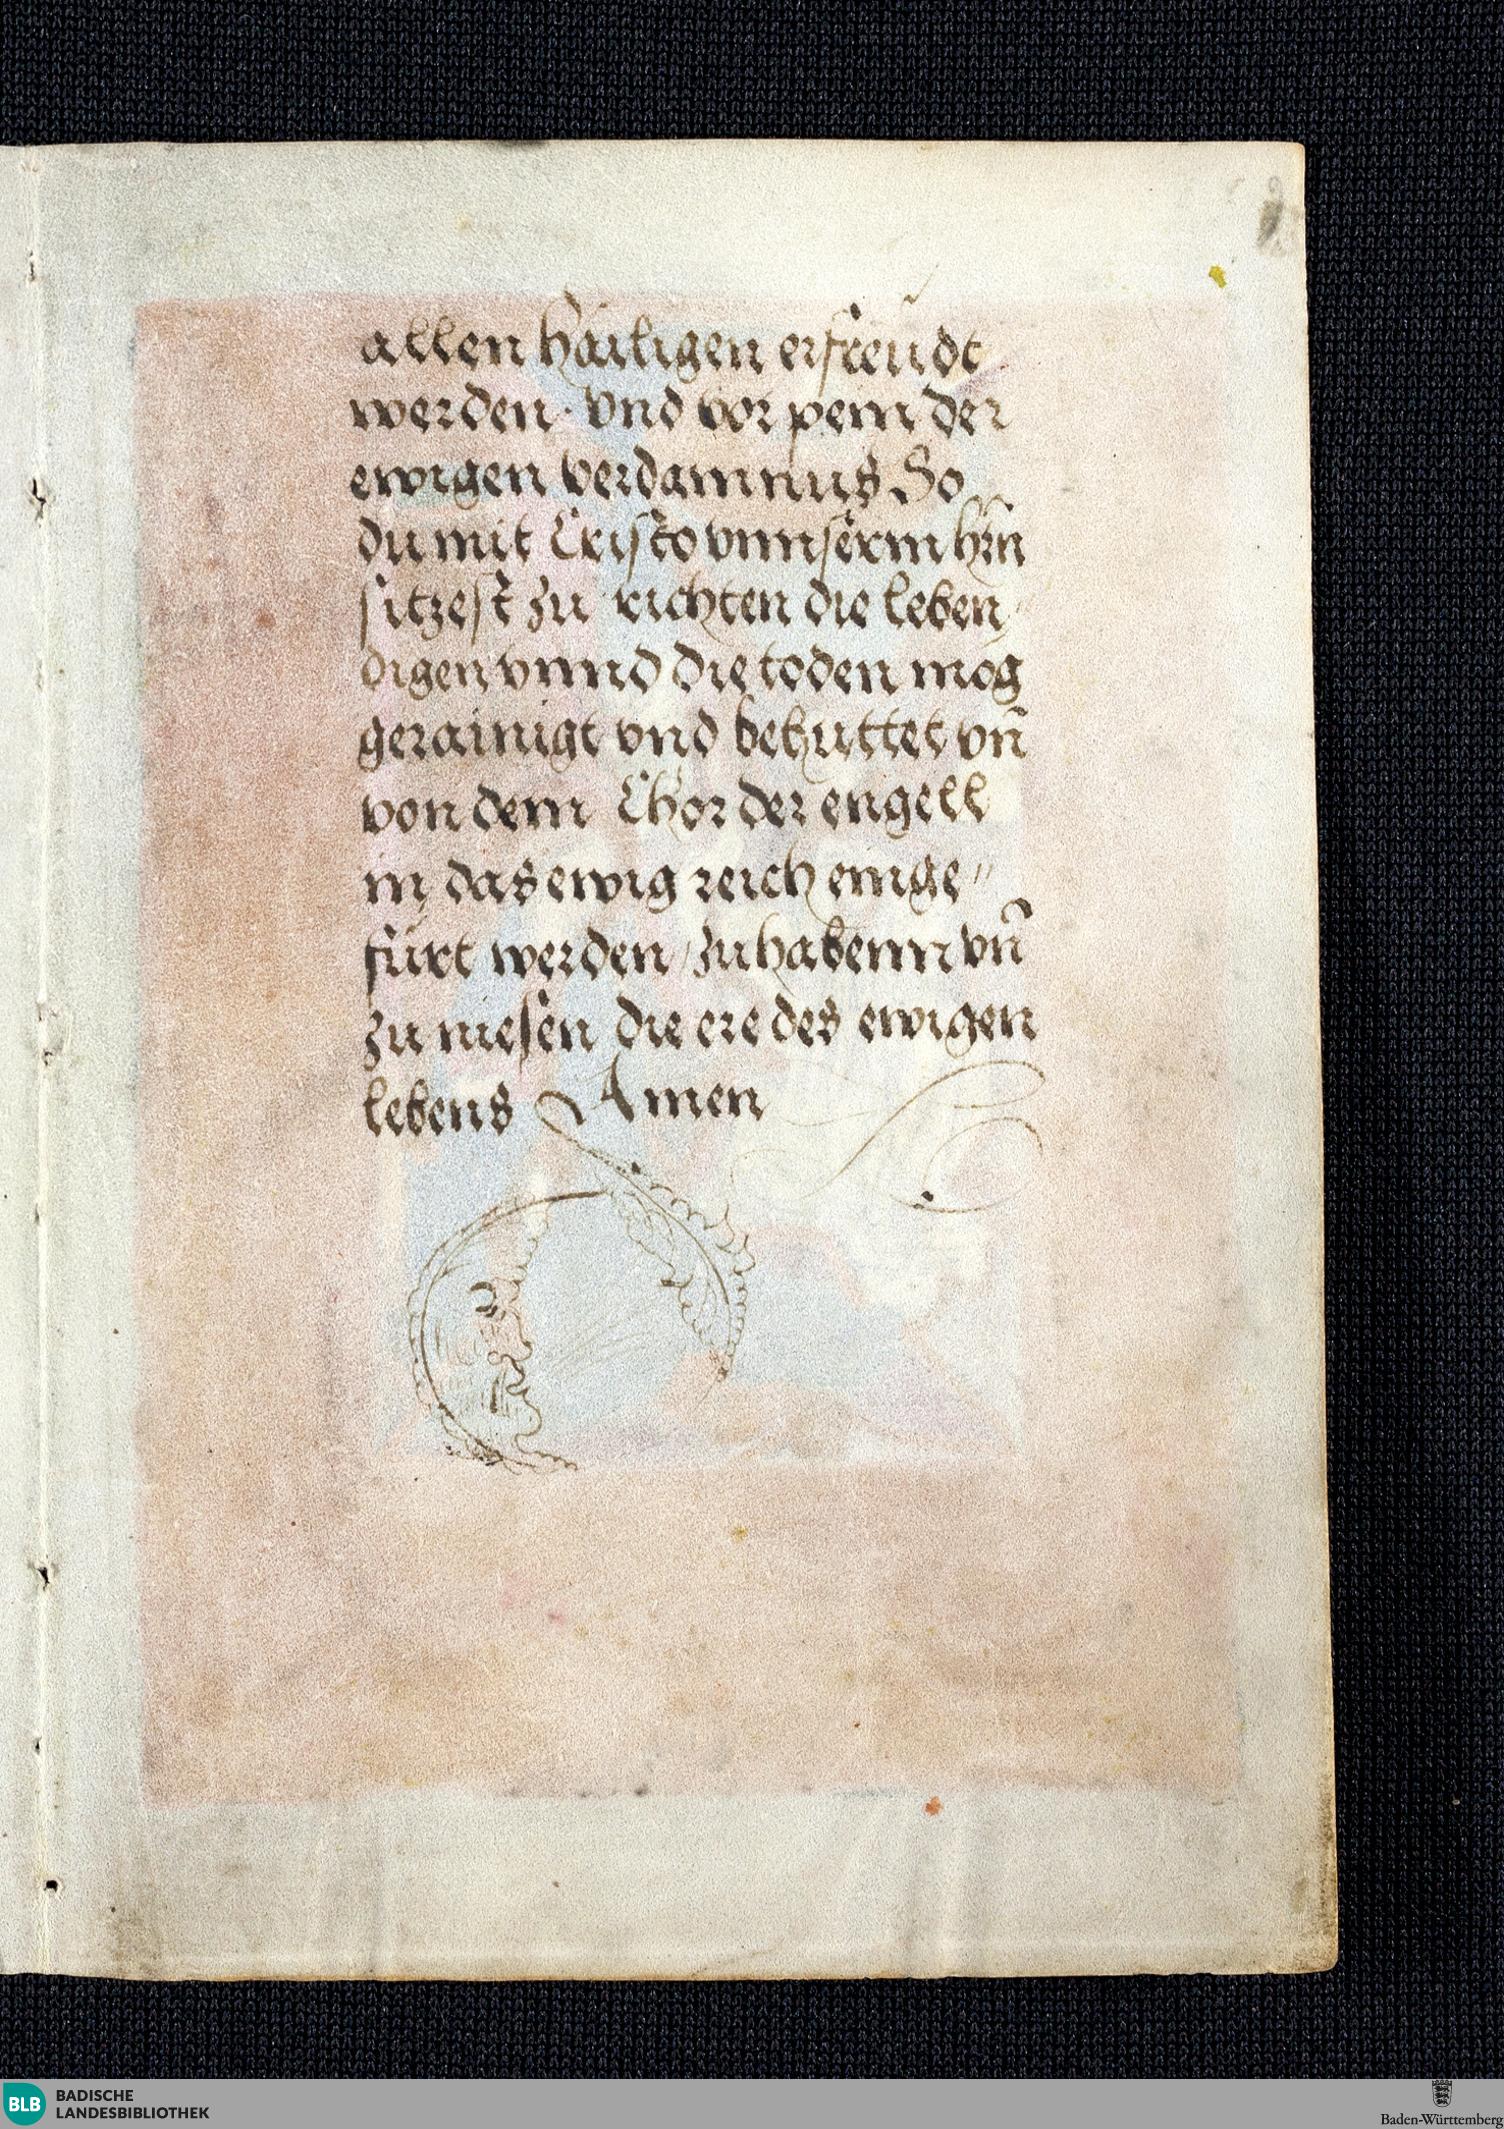 allen hailigen erfreudt
werden · vnd vor pein der
ewigen verdamnus So
du mit Cristo vnnserm hrn̄
sitzest zu richten die leben„
digen vnnd die toden mog
gerainigt vnd behuttet vn̄
von dem Chor der engell
in das ewig reich einge„
fürt werden / zu habenn vn̄
zu niesen die ere des ewigen
lebens Amen
BLB BADISCHE
LANDESBIBLIOTHEK
Baden-Württemberg